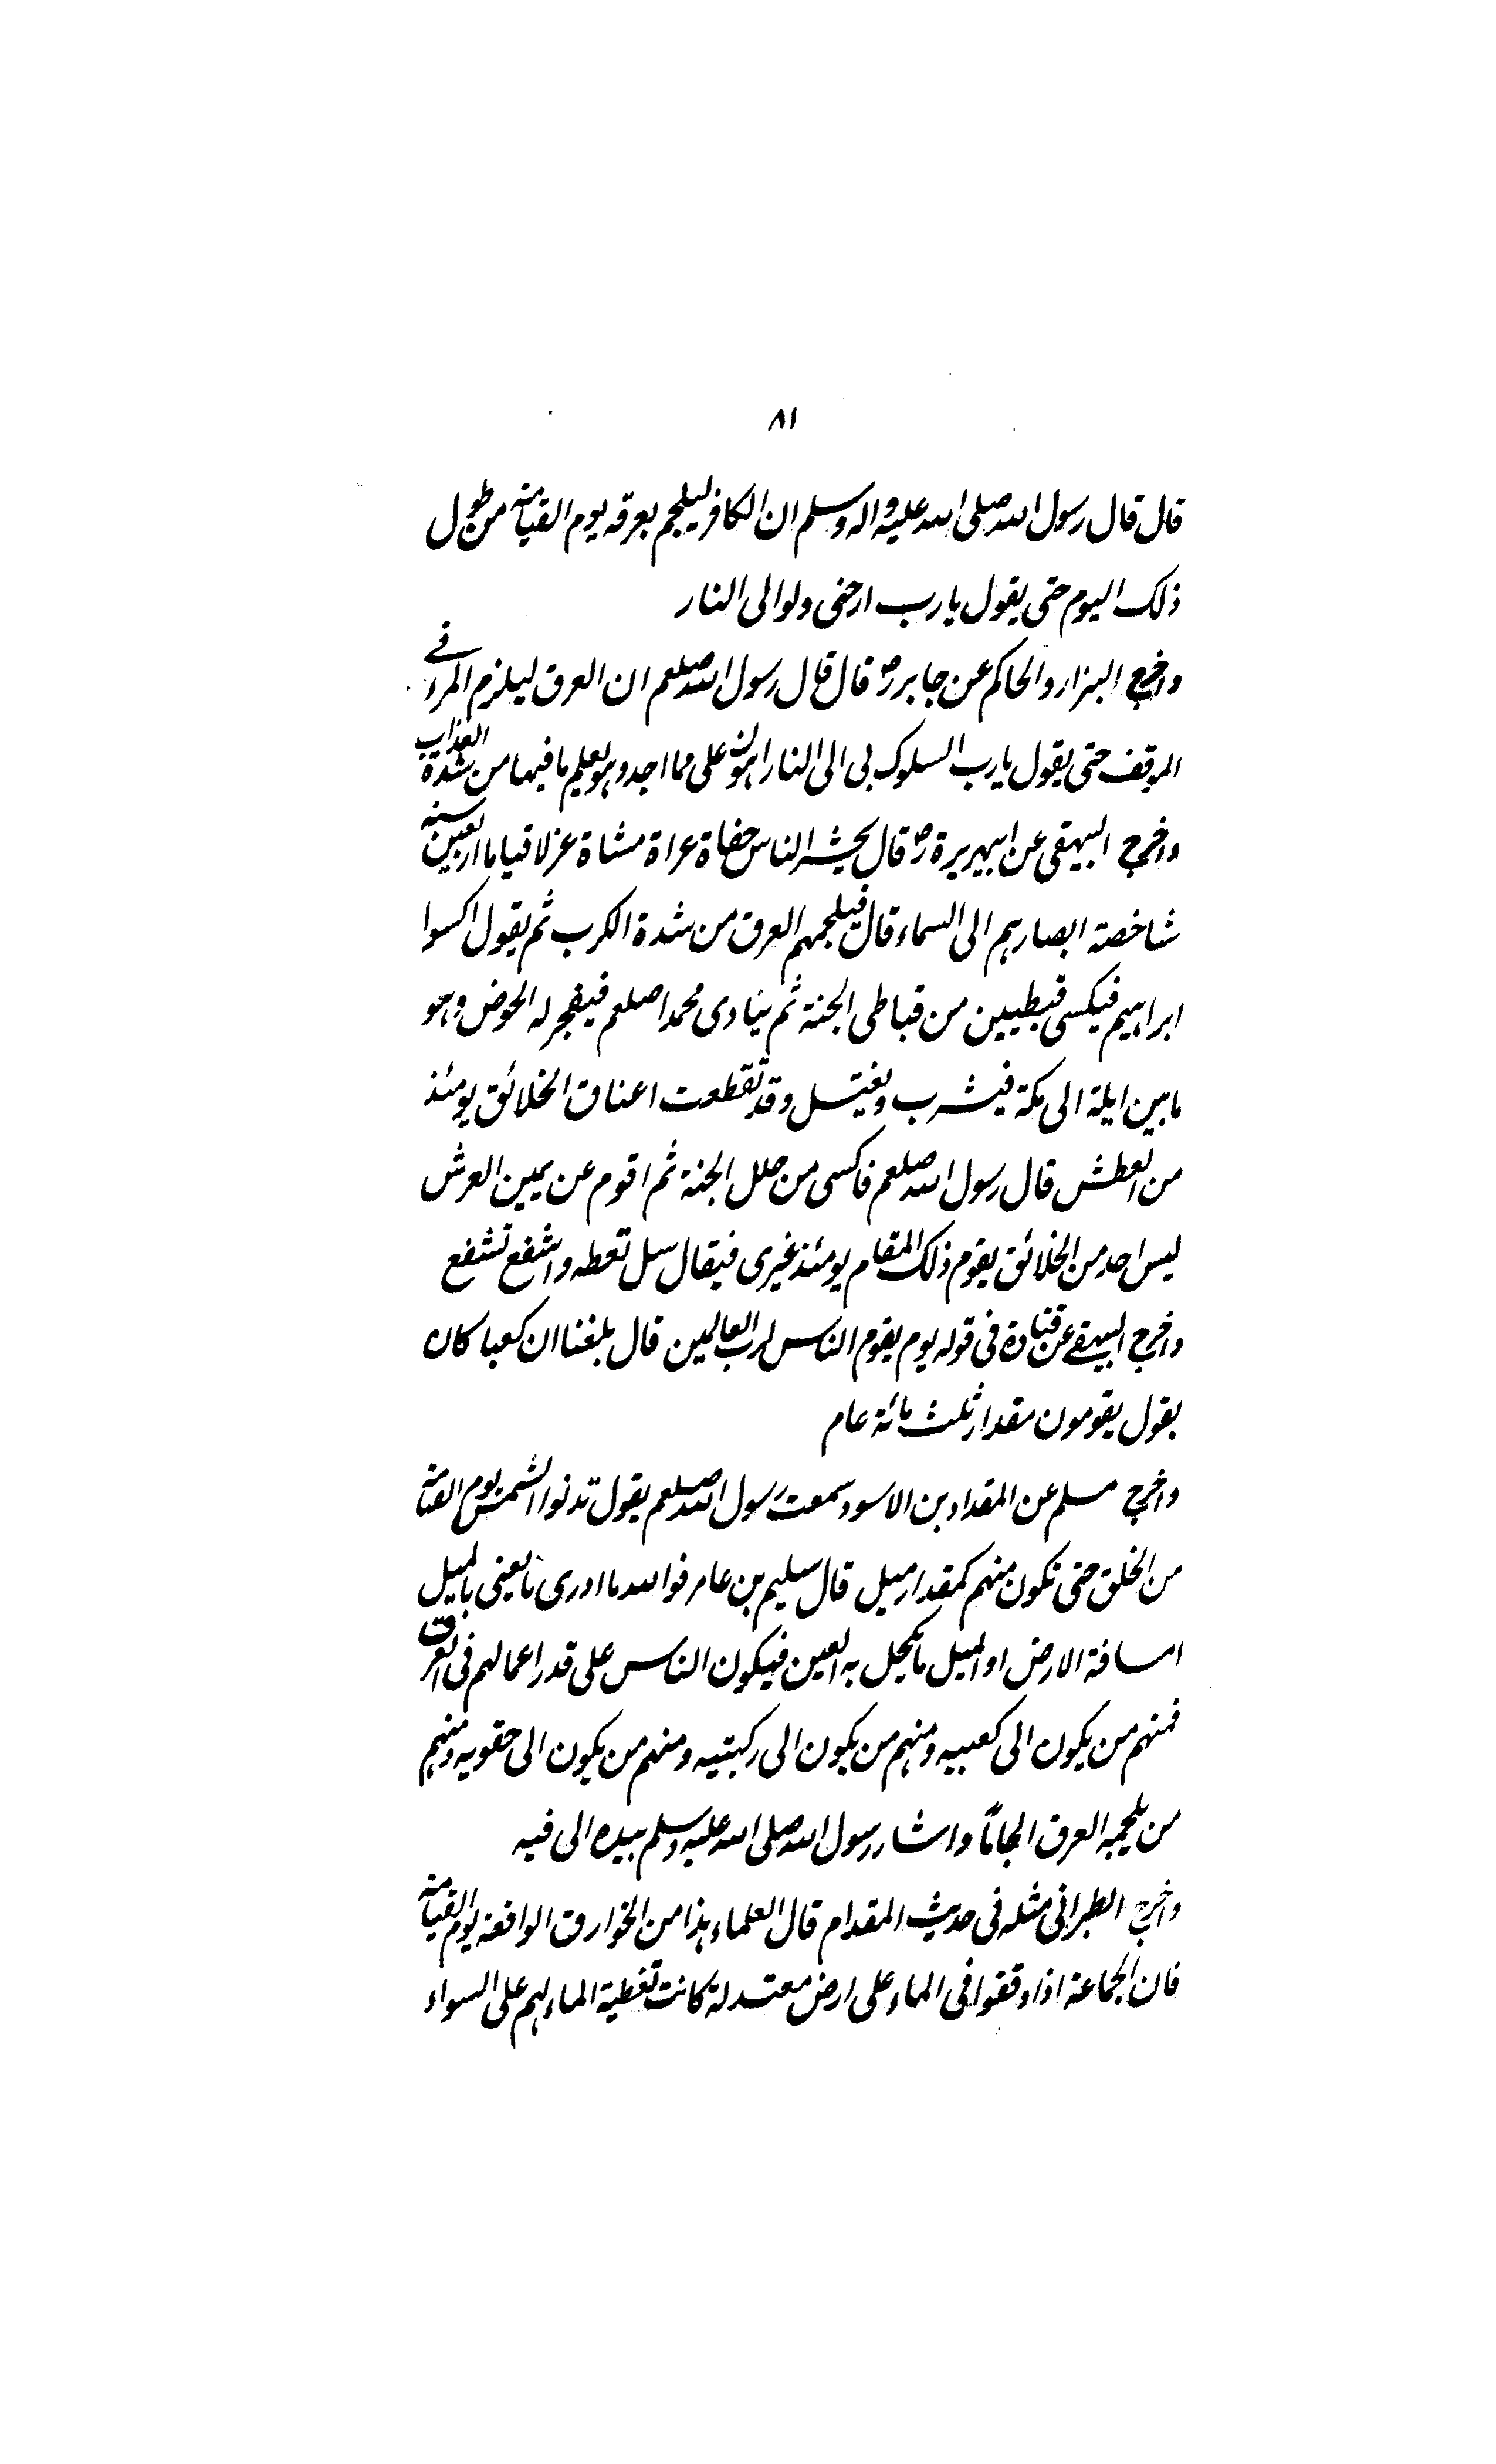 ٨١
قال قال رسول الله صلى الله عليه واله وسلم ان الكافر ليلجم بعرقه يوم القيامة من طول
ذلك اليوم حتى يقول يارب ارحنى ولو الى النار
واخرج البزار والحاكم عن جابر رض قال قال رسول الله صلعم ان العرق ليلزم المرء فے
الموقف حتى يقول يارب السلوك بى الى النار اهون على مما اجد وهو يعلم ما فيها من شدة العذاب
واخرج البيهقى عن ابيهريرة رض قال يحشر الناس حفاة عراة مشاة عزلا قياما اربعين سنة
شاخصة ابصارهم الى السماء قال فيلجمهم العرق من شدة الكرب ثم يقول اكسوا
ابراهيم فيكسى قبطيين من قباطى الجنة ثم ينادى محمدا صلعم فيفجر له الحوض وهو
مابين ايلة الى مكة فيشرب ويغتسل وقد تقطعت اعناق الخلائق يومئذ
من العطش قال رسول الله صلعم فاكسى من حلل الجنة ثم اقوم عن يمين العرش
ليس احد من الخلائق يقوم ذلك المقام يومئذ غيرى فيقال سل تعطه واشفع تشفع
واخرج البيهقے عن قتادة فى قوله يوم يقوم الناس لرب العالمين قال بلغنا ان كعبا كان
يقول يقومون مقدار ثلث مائة عام
واخرج مسلم عن المقداد بن الاسود سمعت رسول الله صلعم يقول تدنوا الشمس يوم القيامة
من الخلق حتى تكون منهم كمقدار ميل قال سليم بن عامر فوالله ما ادرى ما يعنى بالميل
امسافة الارض او الميل ما تكحل به العين فيكون الناس على قدر اعمالهم فى العرق
فمنهم من يكون الى كعبيه ومنهم من يكون الى ركبتيه ومنهم من يكون الى حقويه ومنهم
من يلجمه العرق الجامًا واشار رسول الله صلى الله عليه وسلم بيده الى فيه
واخرج الطبرانى مثله فى حديث المقدام قال العلماء هذا من الخوارق الواقعة يوم القيامة
فان الجماعة اذا وقفوا فى الماء على ارض معتدلة كانت تغطية الماء لهم على السواء